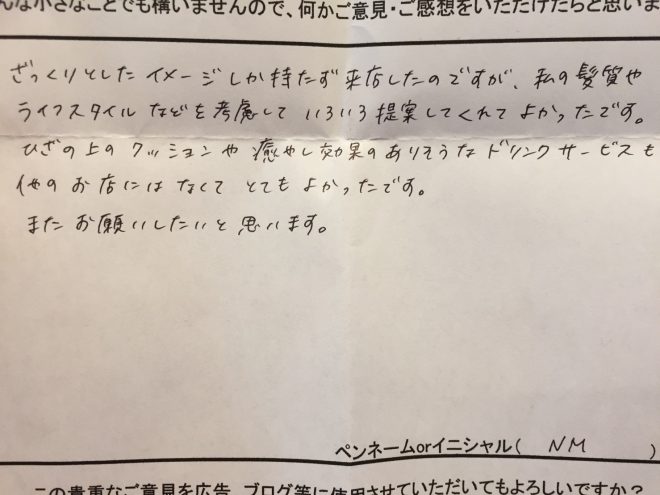 んな小さなことでも構いませんので、何かご意見・ご感想をいただけたらと思いま
ざっくりとしたイメージしか持たず来店したのですが、私の髪質や
ライフスタイルなどを考慮していろいろ提案してくれてよかったです。
ひざの上のクッションや癒やし効果のありそうなドリンクサービスも
他のお店にはなくてとてもよかったです。
またお願いしたいと思います。
ペンネームorイニシャル( NM )
この貴重なご意見を広告、ブログ等に使用させていただいてもよろしいですか?